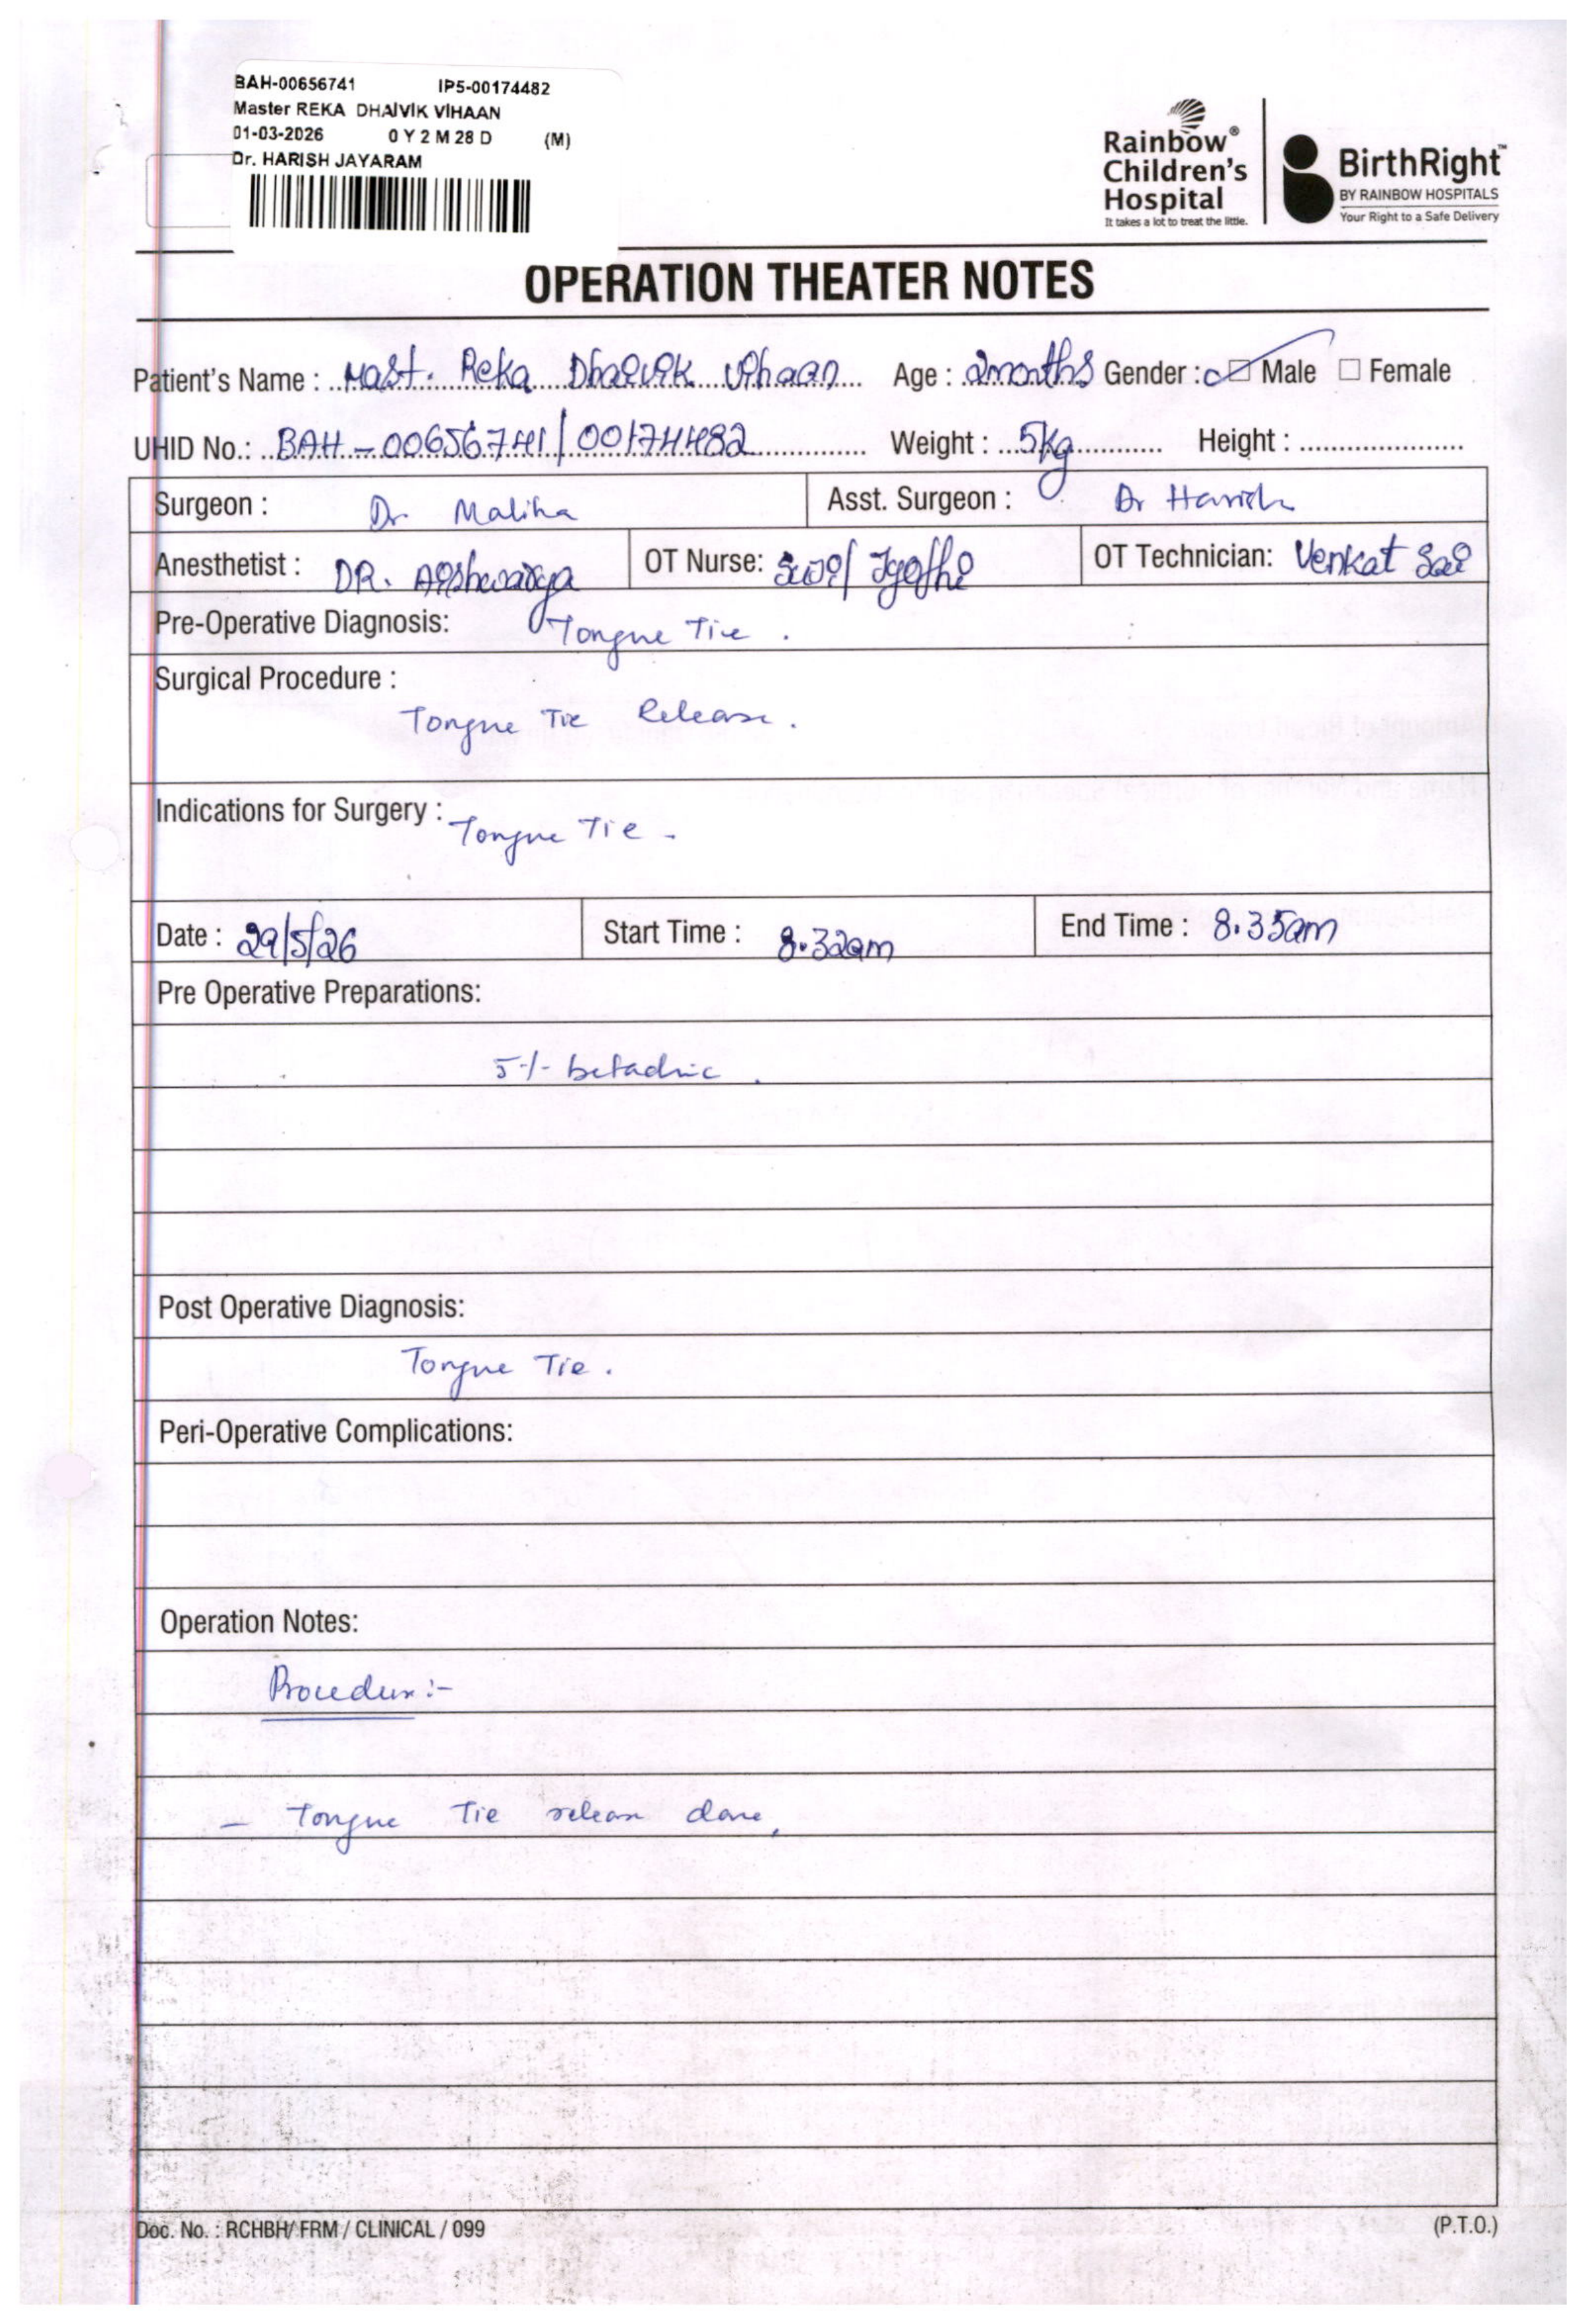 BAH-00656741 IP5-00174482
Master REKA DHAIVIK VIHAAN
01-03-2026 0 Y 2 M 28 D (M)
Dr. HARISH JAYARAM
Rainbow®
Children's
Hospital
It takes a lot to treat the little.
BirthRight™
BY RAINBOW HOSPITALS
Your Right to a Safe Delivery
OPERATION THEATER NOTES
Patient's Name : Mast. Reka Dhaivik Vihaan Age : 2months Gender : Male Female
UHID No.: BAH-00656741/00174482 Weight : 5Kg Height :
Surgeon : Dr. Maliha Asst. Surgeon : Dr Harish
Anesthetist : DR. Aishwarya OT Nurse: / Jyothi OT Technician: Venkat Sai
Pre-Operative Diagnosis: Tongue Tie .
Surgical Procedure :
Tongue Tie Release.
Indications for Surgery : Tongue Tie -
Date : 29/5/26 Start Time : 8.32am End Time : 8.35am
Pre Operative Preparations:
5 % betadine .
Post Operative Diagnosis:
Tongue Tie .
Peri-Operative Complications:
Operation Notes:
Procedure :-
- Tongue Tie release done,
Doc. No. : RCHBH/ FRM / CLINICAL / 099 (P.T.O.)